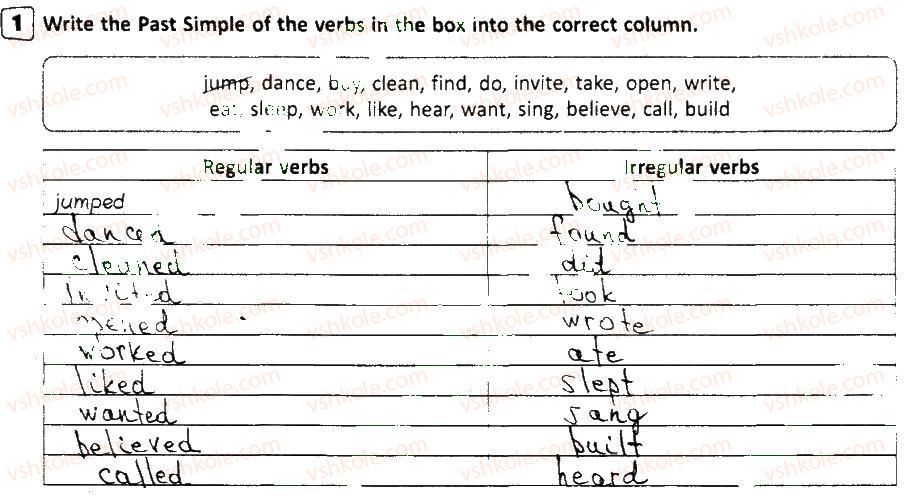 1 Write the Past Simple of the verbs in the box into the correct column.
jump, dance, buy, clean, find, do, invite, take, open, write,
eat, sleep, work, like, hear, want, sing, believe, call, build
Regular verbs Irregular verbs
jumped bought
danced found
cleaned did
invited took
opened wrote
worked ate
liked slept
wanted sang
believed built
called heard
vshkole.com